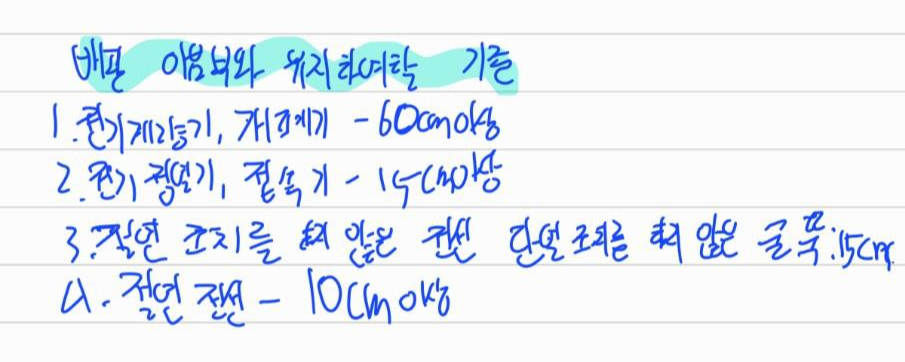 배관 이음부와 유지하여할 기준
1. 전기계량기, 개폐기 - 60cm이상
2. 전기 점멸기, 접속기 - 15cm이상
3. 절연 조치를 하지 않은 전선 단열조치를 하지 않은 굴뚝:15cm.
4. 절연 전선 - 10cm이상